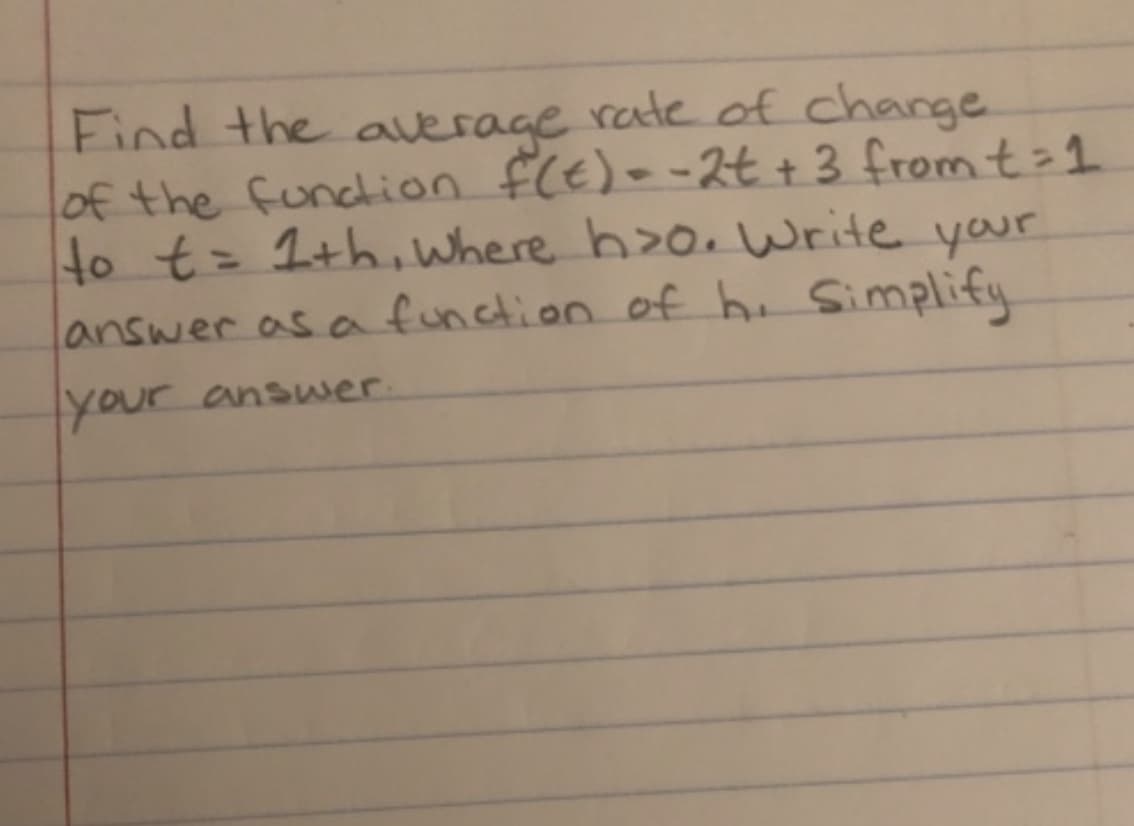 Find the average rate of change
of the function f(t) = -2t + 3 from t = 1
to t = 1+h, where h>0. Write your
answer as a function of h. Simplify
your answer.